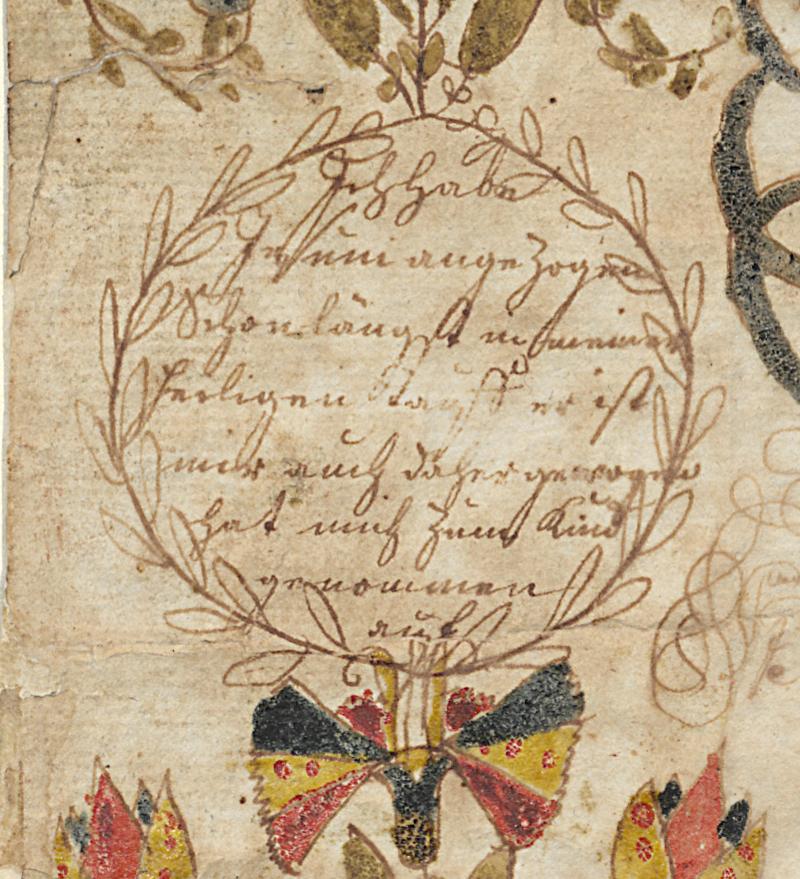 Ich habe
Jesum angezogen
Schon längst in meiner
heiligen tauff er ist
mir auch daher gewogen
hat mich zum Kind
genommen
auf